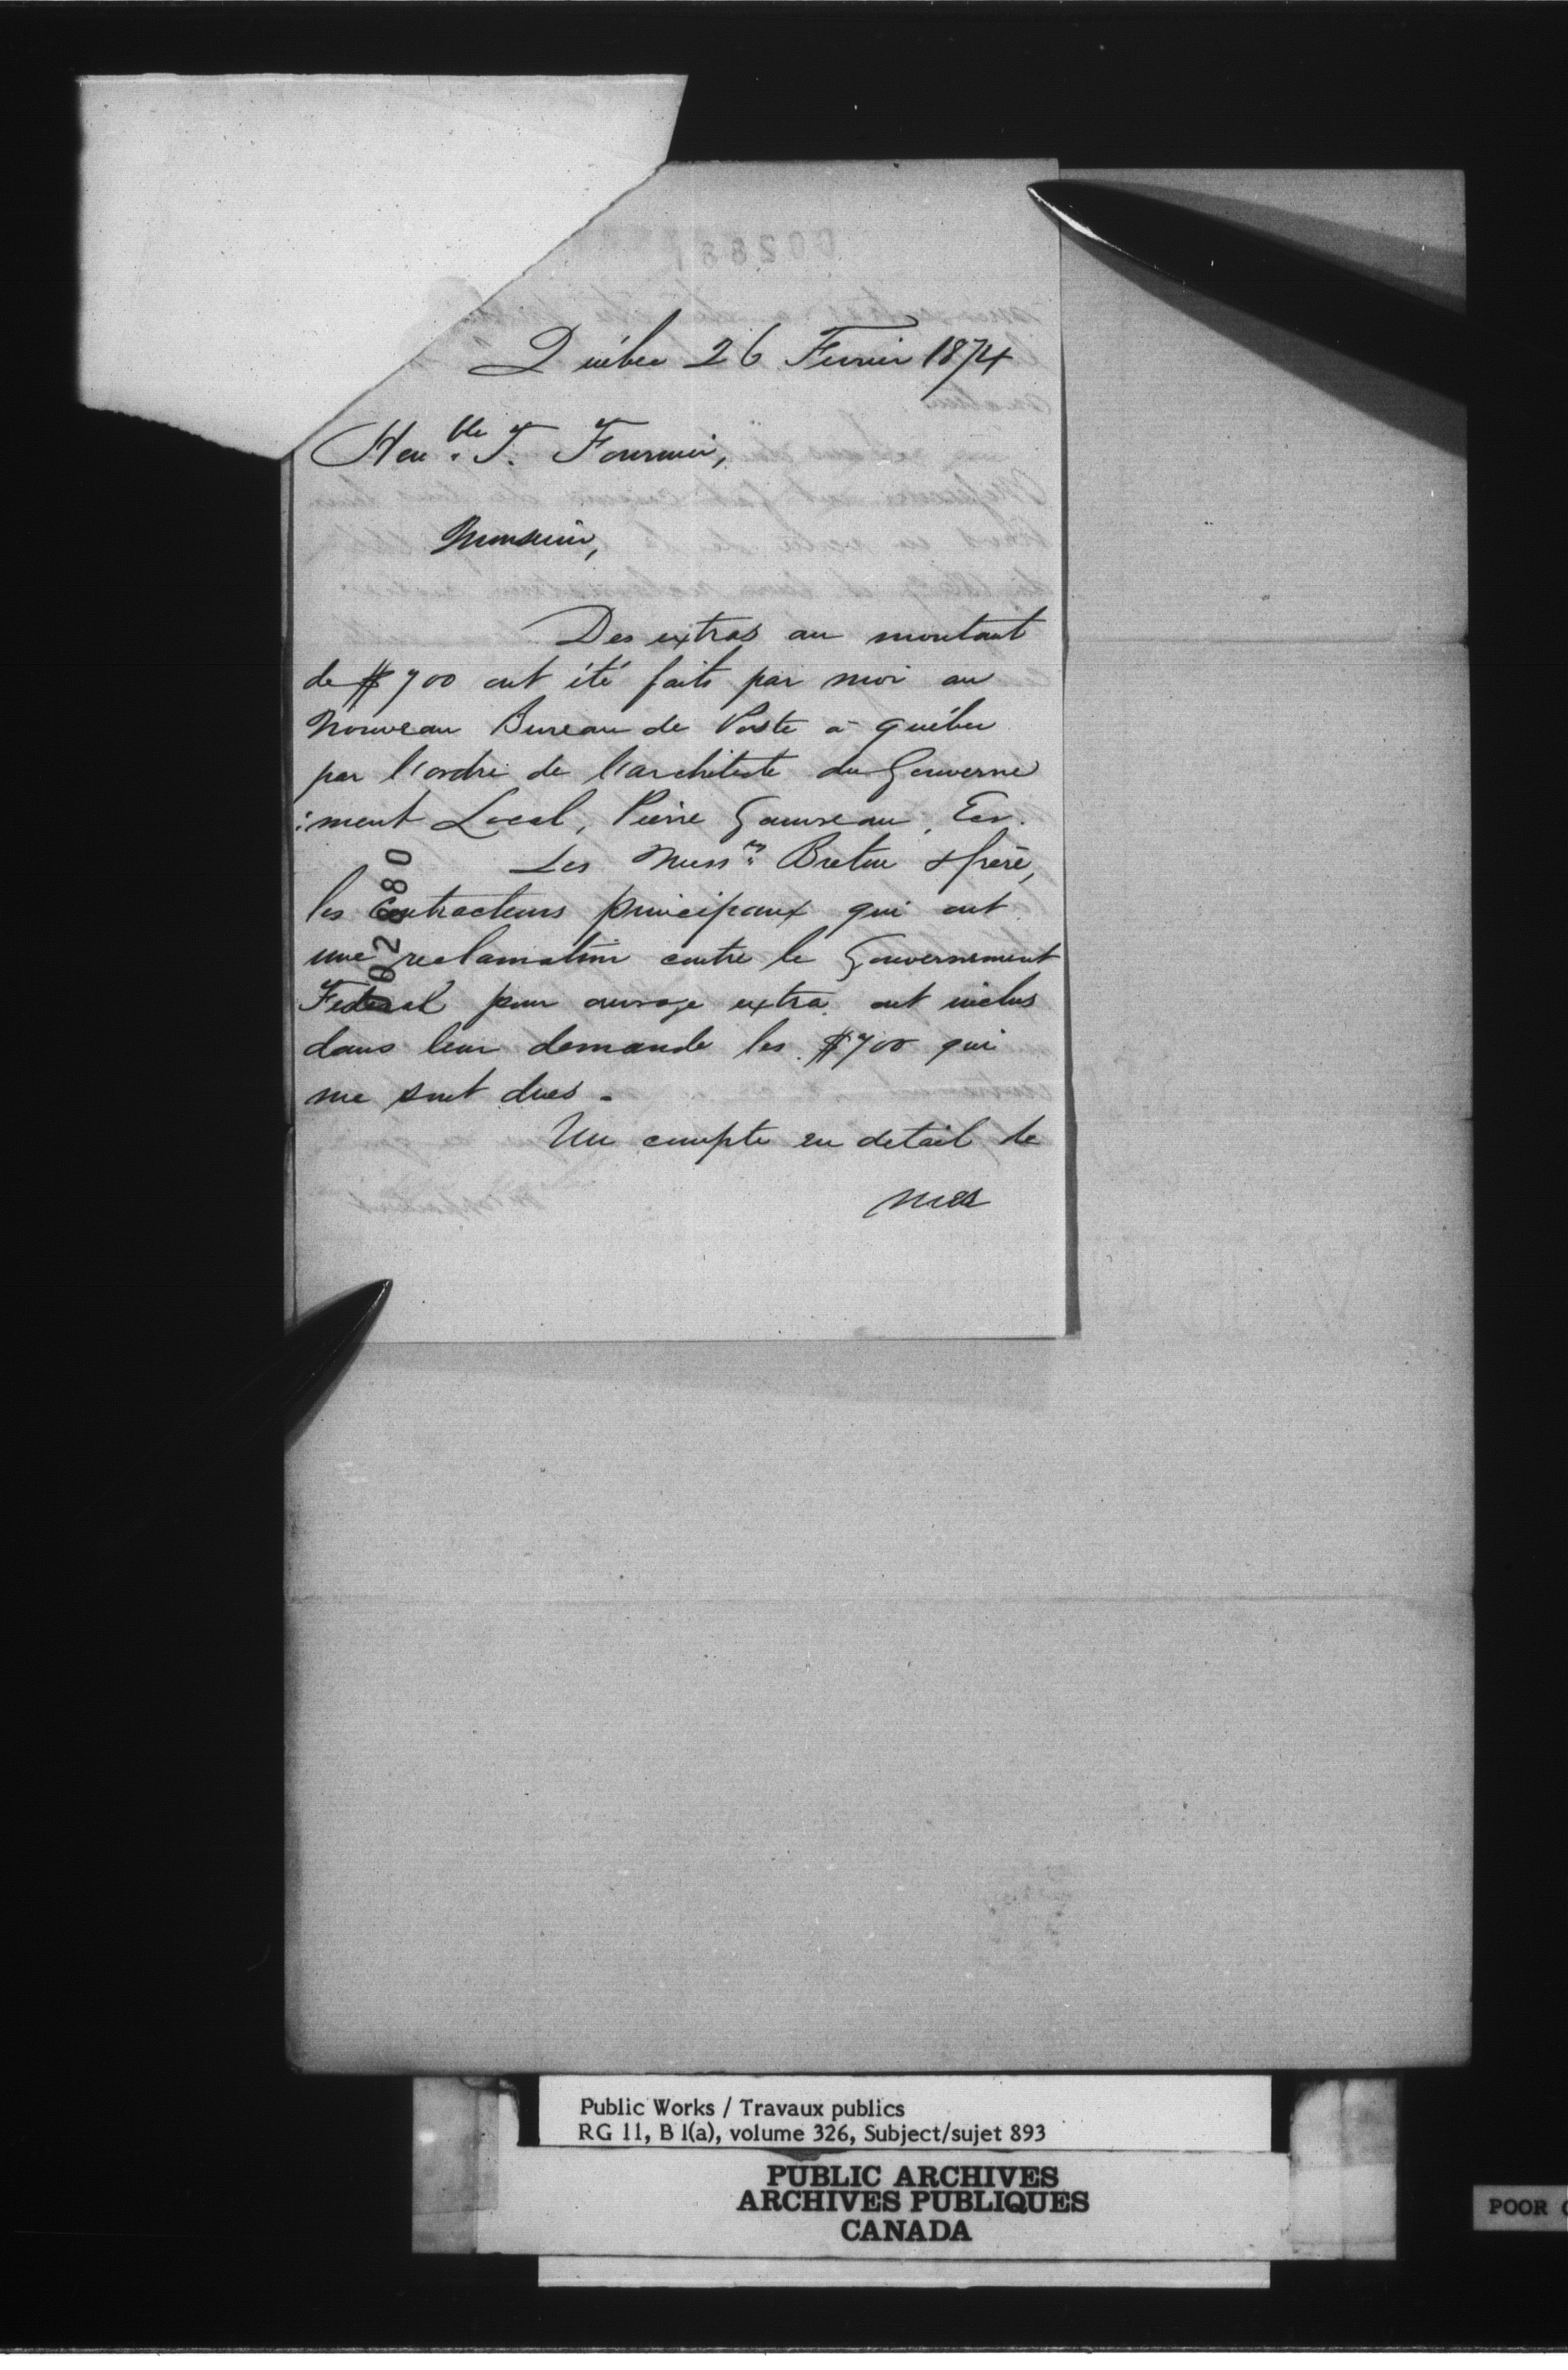 Québec 26 Fevrier 1874
Honble. T. Fournier,
Monsieur,
Des extras au montant
de $700 ont été faits par moi au
nouveau Bureau de Poste à Québec
par l'ordre de l'architecte du Gouverne
:ment Local, Pierre Gauvreau, Ecr.
Les Messrs Breton & frère,
les Contracteurs principaux qui ont
une reclamation contre le Gouvernement
Federal pour ouvrage extra ont inclus
dans leur demande les $700 qui
me sont dues.
Un compte en detail de
mes
Public Works / Travaux publics
RG 11, B 1(a), volume 326, Subject/sujet 893
PUBLIC ARCHIVES
ARCHIVES PUBLIQUES
CANADA
POOR